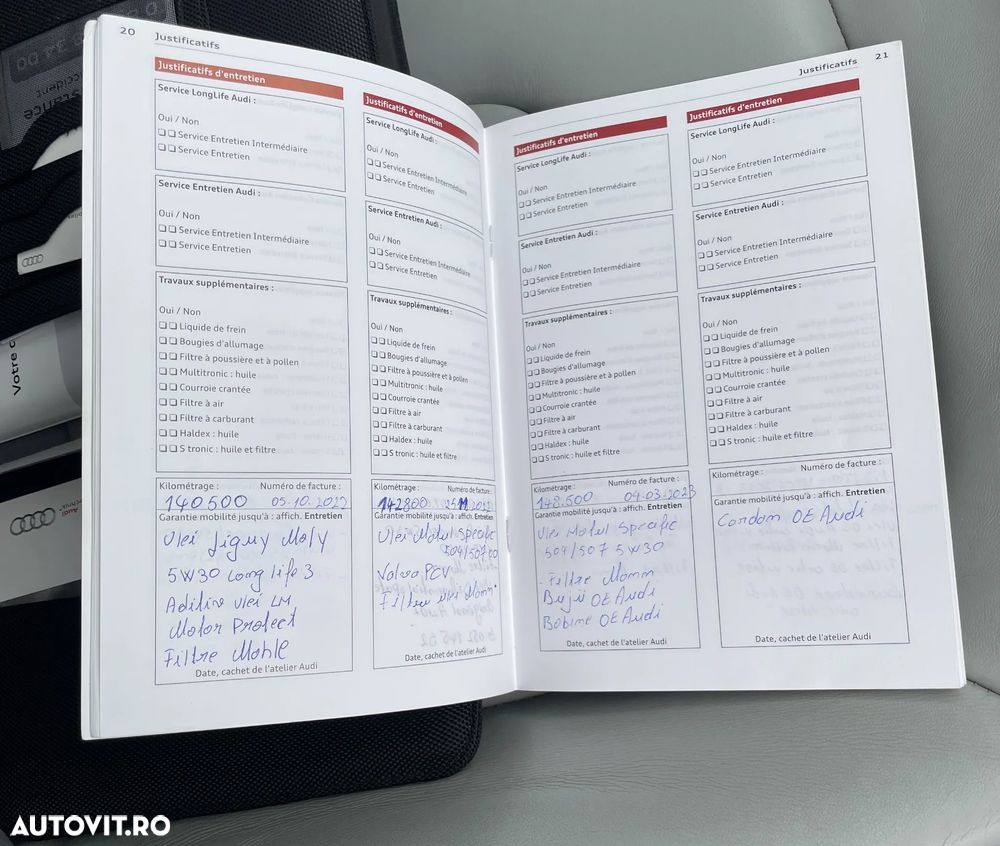 20
Justificatifs
Justificatifs d'entretien
Service LongLife Audi :
Oui / Non
Service Entretien Intermédiaire
Service Entretien
Service Entretien Audi :
Oui / Non
Service Entretien Intermédiaire
Service Entretien
Travaux supplémentaires :
Oui / Non
Liquide de frein
Bougies d'allumage
Filtre à poussière et à pollen
Multitronic : huile
Courroie crantée
Filtre à air
Filtre à carburant
Haldex : huile
S tronic : huile et filtre
Kilométrage : Numéro de facture :
140500 05.10.2022
Garantie mobilité jusqu'à : affich. Entretien
Ulei Liguy Moly
5W30 Long life 3
Aditive Ulei LM
Motor Protect
Filtre Mahle
Date, cachet de l'atelier Audi
Justificatifs d'entretien
Service LongLife Audi :
Oui / Non
Service Entretien Intermédiaire
Service Entretien
Service Entretien Audi :
Oui / Non
Service Entretien Intermédiaire
Service Entretien
Travaux supplémentaires :
Oui / Non
Liquide de frein
Bougies d'allumage
Filtre à poussière et à pollen
Multitronic : huile
Courroie crantée
Filtre à air
Filtre à carburant
Haldex : huile
S tronic : huile et filtre
Kilométrage : Numéro de facture :
142800
Garantie mobilité jusqu'à : affich. Entretien
Ulei Motul Specific
504/507 00
Valva PCV
Filtru Ulei Mann
Date, cachet de l'atelier Audi
Justificatifs
21
Justificatifs d'entretien
Service LongLife Audi :
Oui / Non
Service Entretien Intermédiaire
Service Entretien
Service Entretien Audi :
Oui / Non
Service Entretien Intermédiaire
Service Entretien
Travaux supplémentaires :
Oui / Non
Liquide de frein
Bougies d'allumage
Filtre à poussière et à pollen
Multitronic : huile
Courroie crantée
Filtre à air
Filtre à carburant
Haldex : huile
S tronic : huile et filtre
Kilométrage : Numéro de facture :
148.500 04.03.2023
Garantie mobilité jusqu'à : affich. Entretien
Ulei Motul Specific
504/507 5W30
Filtre Mann
Bujii OE Audi
Bobine OE Audi
Date, cachet de l'atelier Audi
Justificatifs d'entretien
Service LongLife Audi :
Oui / Non
Service Entretien Intermédiaire
Service Entretien
Service Entretien Audi :
Oui / Non
Service Entretien Intermédiaire
Service Entretien
Travaux supplémentaires :
Oui / Non
Liquide de frein
Bougies d'allumage
Filtre à poussière et à pollen
Multitronic : huile
Courroie crantée
Filtre à air
Filtre à carburant
Haldex : huile
S tronic : huile et filtre
Kilométrage : Numéro de facture :
Garantie mobilité jusqu'à : affich. Entretien
Cardan OE Audi
Date, cachet de l'atelier Audi
Votre
Audi
AUTOVIT.RO